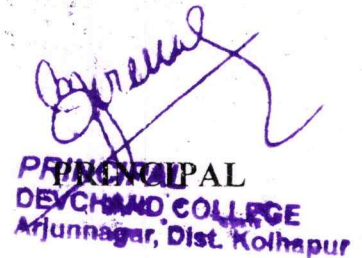 PRINCIPAL
PRINCIPAL
DEVCHAND COLLEGE
Arjunnagar, Dist. Kolhapur